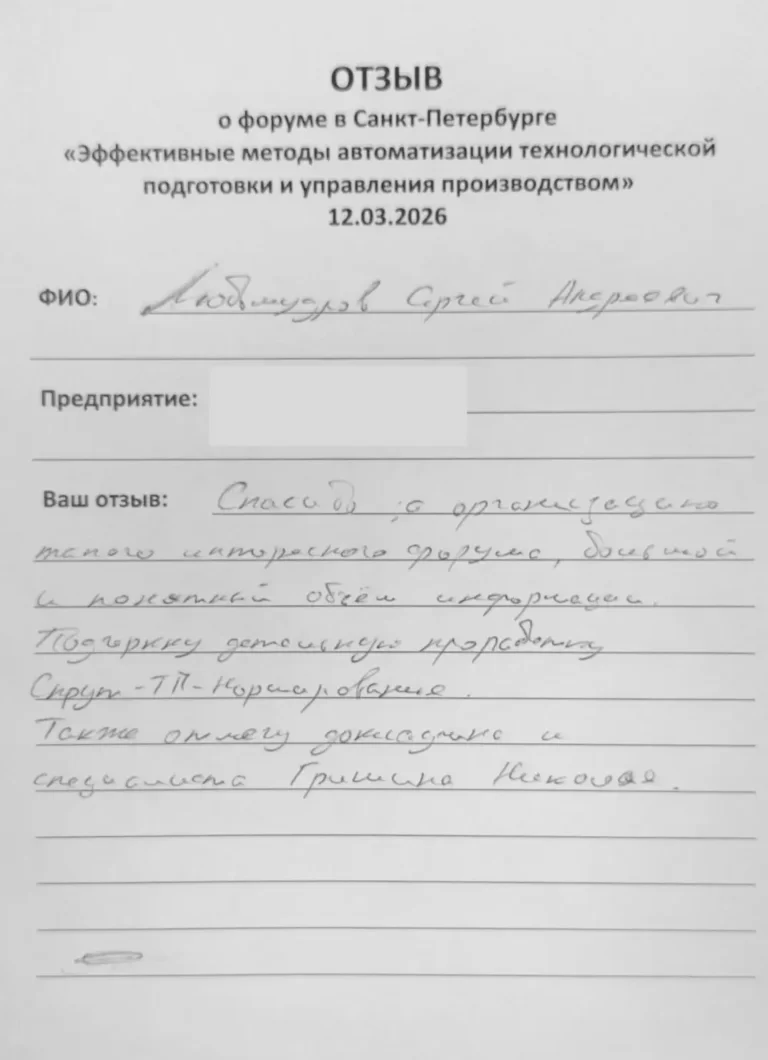 ОТЗЫВ
о форуме в Санкт-Петербурге
«Эффективные методы автоматизации технологической
подготовки и управления производством»
12.03.2026
ФИО: Любомудров Сергей Андреевич
Предприятие:
Ваш отзыв: Спасибо за организацию
такого интересного форума, большой
и понятный объём информации.
Подчеркну детальную проработку
-ТП-Нормирование.
Также отмечу докладчика и
специалиста Гришина Николая.